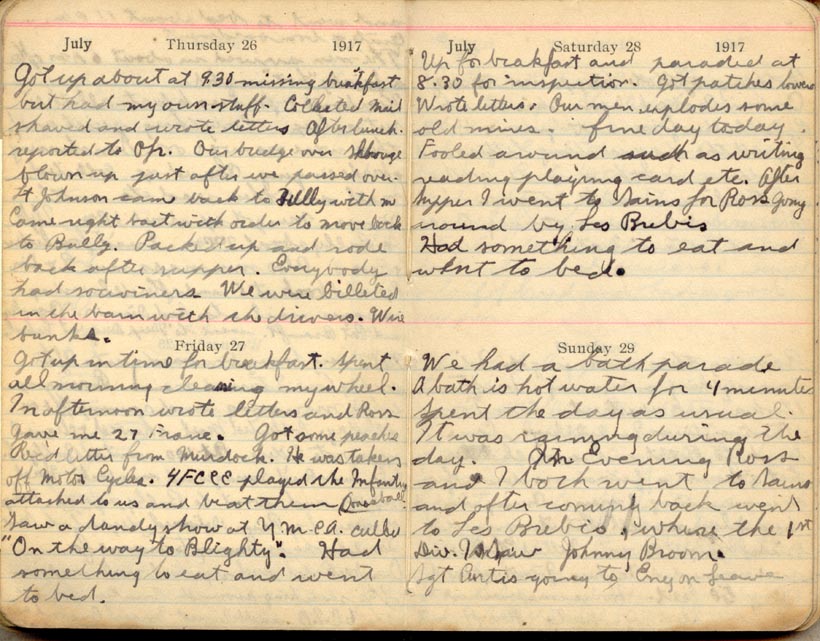 July Thursday 26 1917
Got up about at 9.30 missing breakfast
but had my own stuff. Collected mail
shaved and wrote letters After lunch.
reported to Op. Our bridge over
blown up just after we passed over.
Lt Johnson cam back to Bully with m
Came right bact with order to move back
to Bully. Packed up and rode
back after supper. Everybody
had souviners We were billeted
in the barn with the drivers. Wire
bunks.
Friday 27
Got up in time for breakfast. Spent
all morning cleaning my wheel.
In afternoon wrote letters and Ross
gave me 27 Franc. Got some peaches
Rec'd letter from Murdock. He was taken
off Motor Cycles. 4FCCE played the Infantry
attached to us and beat them baseball
Saw a dandy show at Y.M.C.A. called
"On the way to Blighty". Had
something to eat and went
to bed.
July Saturday 28 1917
Up for breakfast and paraded at
8.30 for inspection. Got patches
Wrote letters. Our men explodes some
old mines. fine day today.
Fooled around such as writing
reading playing card etc. After
supper I went to Sains for Ross going
round by Les Brebis
Had something to eat and
went to bed.
Sunday 29
We had a bath parade
A bath is hot water for 4 minutes
Spent the day as usual.
It was raining during the
day. In Evening Ross
and I both went to Sains
and after coming back went
to Les Brebis, where the 1st
Div. I saw Johnny Broom.
Sgt Curtis going to Eng on Leave